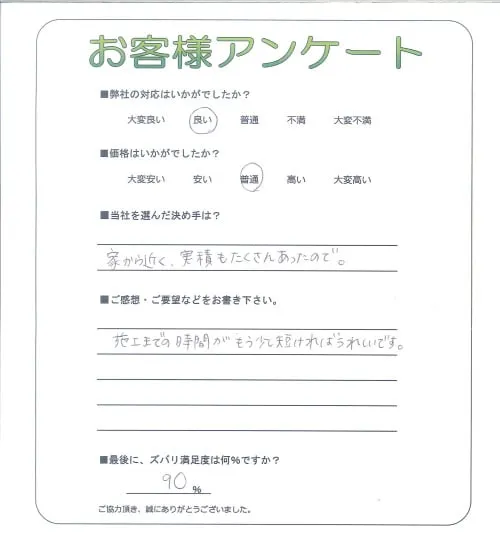 お客様アンケート
■弊社の対応はいかがでしたか？
大変良い 良い 普通 不満 大変不満
■価格はいかがでしたか？
大変安い 安い 普通 高い 大変高い
■当社を選んだ決め手は？
家から近く、実積もたくさんあったので。
■ご感想・ご要望などをお書き下さい。
施工までの時間がもう少し短ければうれしいです。
■最後に、ズバリ満足度は何%ですか？
90 %
ご協力頂き、誠にありがとうございました。